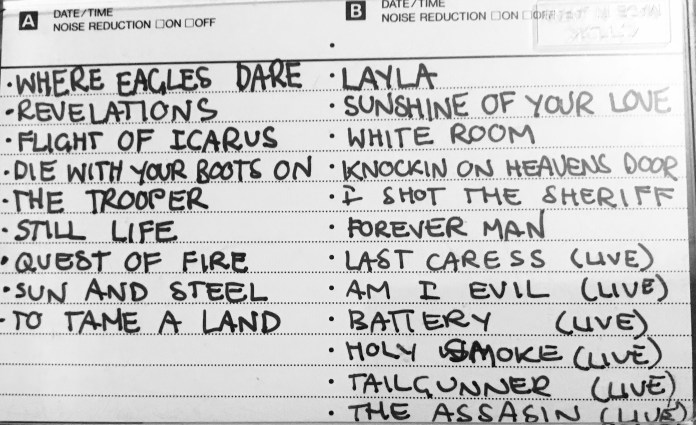 A DATE/TIME
NOISE REDUCTION □ON □OFF
·WHERE EAGLES DARE
·REVELATIONS
·FLIGHT OF ICARUS
·DIE WITH YOUR BOOTS ON
·THE TROOPER
·STILL LIFE
·QUEST OF FIRE
·SUN AND STEEL
·TO TAME A LAND
B DATE/TIME
NOISE REDUCTION □ON □OFF
·
·LAYLA
·SUNSHINE OF YOUR LOVE
·WHITE ROOM
·KNOCKIN ON HEAVENS DOOR
·I SHOT THE SHERIFF
·FOREVER MAN
·LAST CARESS (LIVE)
·AM I EVIL (LIVE)
·BATTERY (LIVE)
·HOLY SMOKE (LIVE)
·TAILGUNNER (LIVE)
·THE ASSASIN (LIVE)